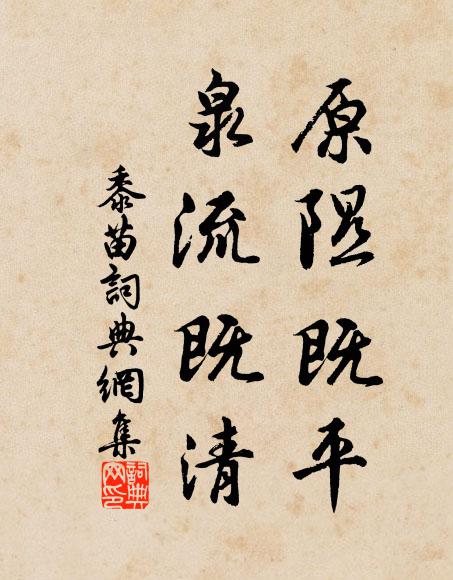 原隰既平
泉流既清
黍苗詞典網集
詞典網印